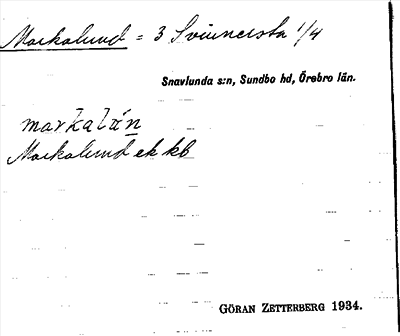 Markalund = 3 Svinnersta 1/4
Snavlunda s:n, Sundbo hd, Örebro län.
markalún
Markalund ek kb
GÖRAN ZETTERBERG 1934.